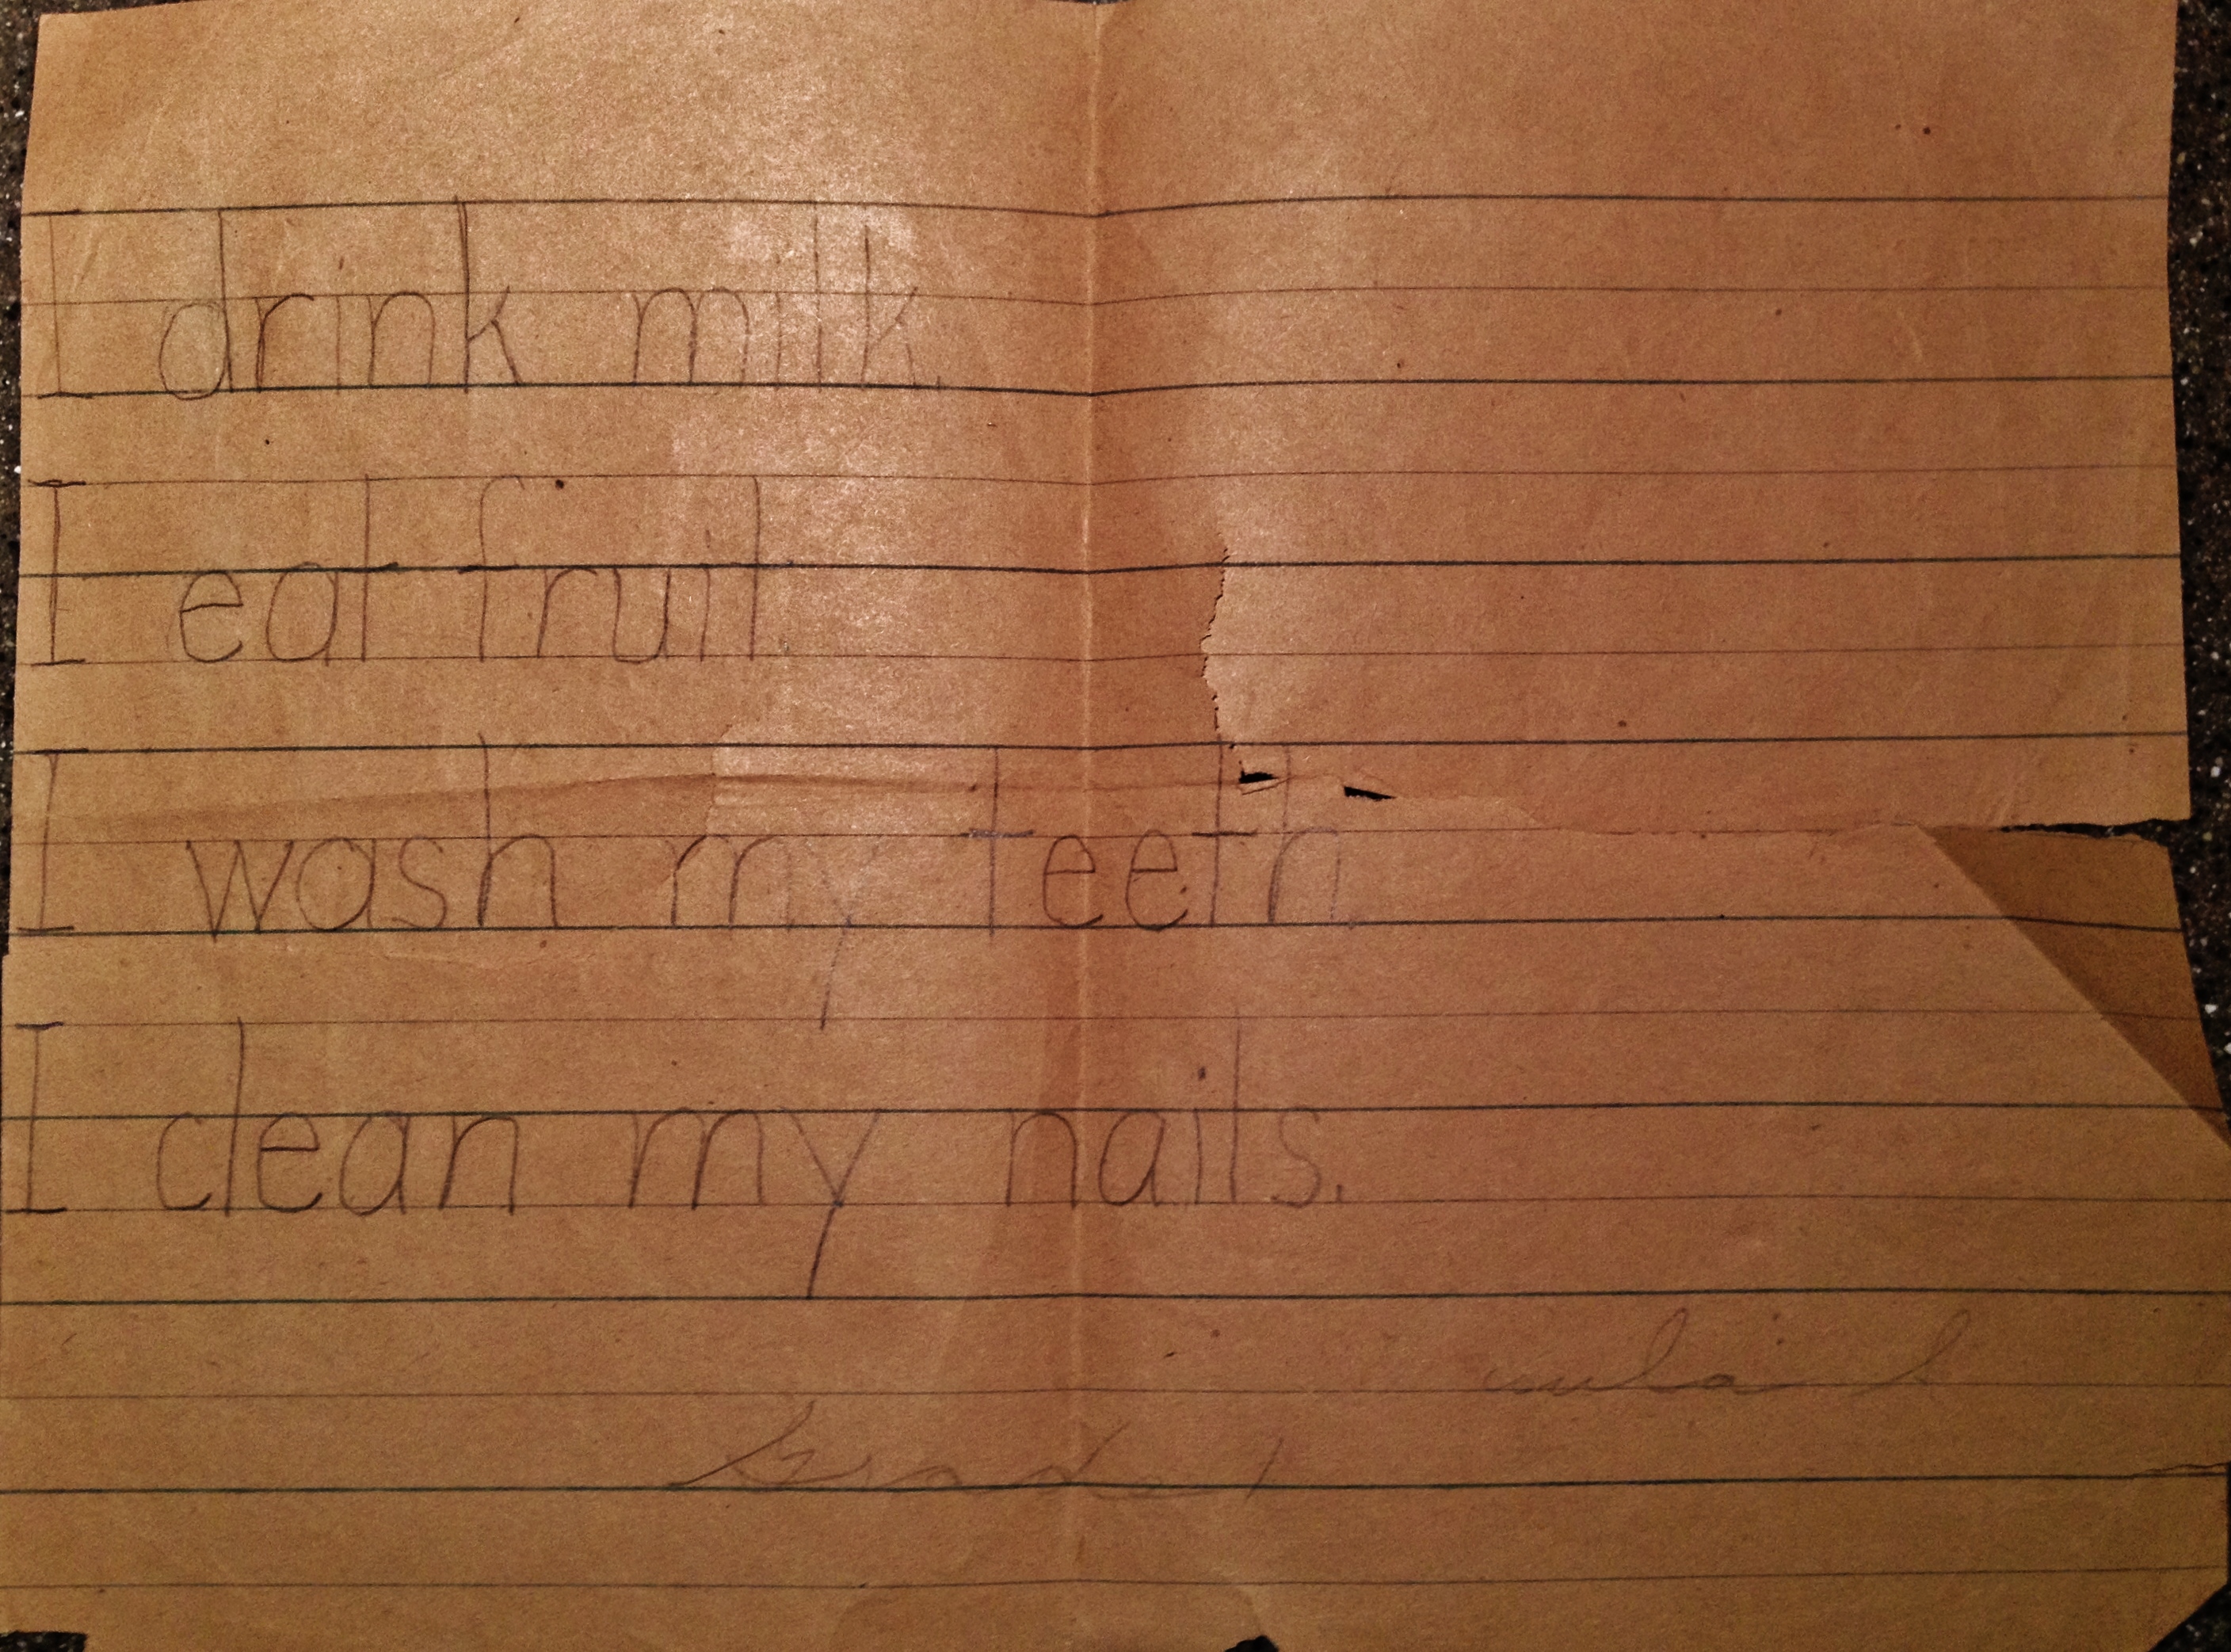 I drink milk.
I eat fruit.
I wash my teeth.
I clean my nails.
Grade 1